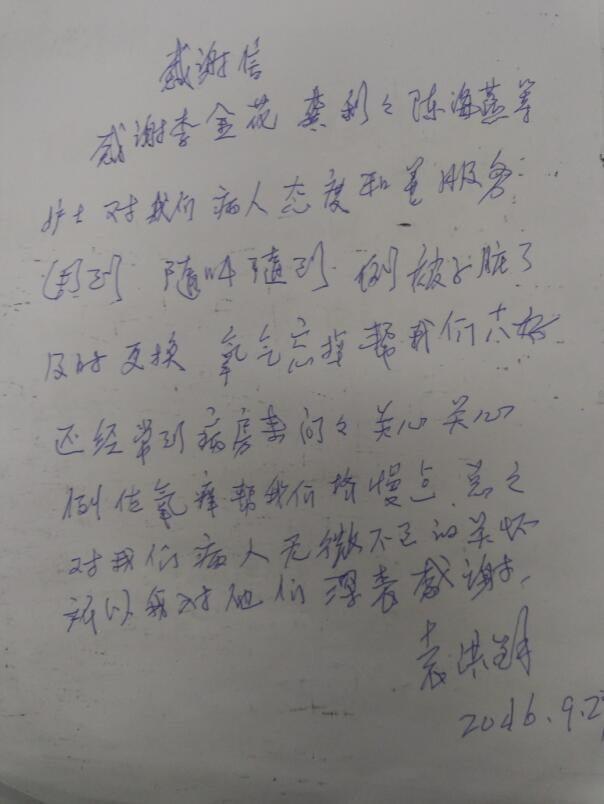 感谢信
感谢李金花 龚利々 陈海燕等
护士 对我们病人态度和善 服务
周到 随叫随到 例被子脏了
及时更换 氧气忘掉帮我们
还经常到病房来问々 关心关心
例 氧 帮我们 慢点 总之
对我们病人无微不至的关怀
所以我对他们深表感谢
袁洪
2016.9.2